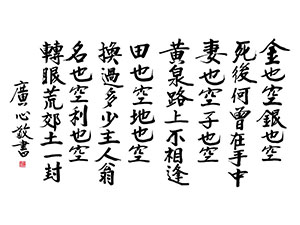 金也空銀也空
死後何曾在手中
妻也空子也空
黃泉路上不相逢
田也空地也空
換過多少主人翁
名也空利也空
轉眼荒郊土一封
廣心敬書